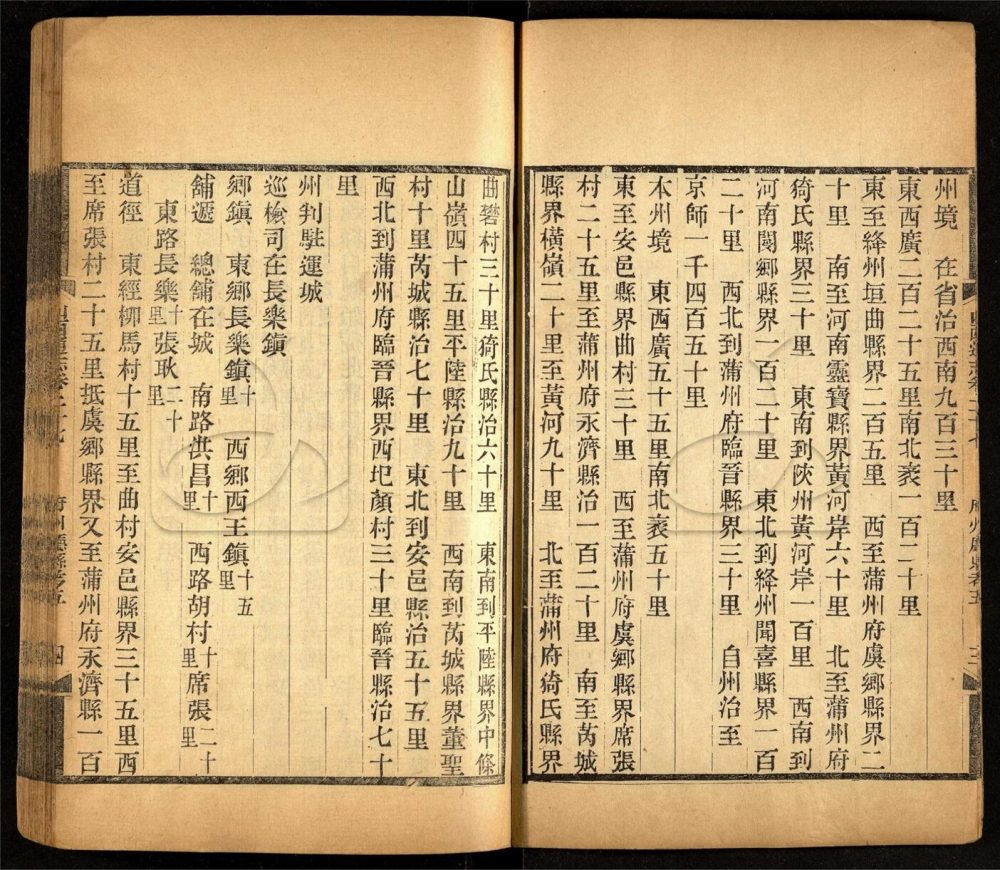 州境　在省治西南九百三十里
東西廣二百二十五里南北袤一百二十里
東至絳州垣曲縣界二百五里　西至蒲州府虞鄉縣界二
十里　南至河南靈寶縣界黃河岸六十里　北至蒲州府
猗氏縣界三十里　東南到陝州黃河岸一百里　西南到
河南閿鄉縣界一百二十里　東北到絳州聞喜縣界一百
二十里　西北到蒲州府臨晉縣界三十里　自州治至
京師一千四百五十里
本州境　東西廣五十五里南北袤五十里
東至安邑縣界曲村三十里　西至蒲州府虞鄉縣界席張
村二十五里至蒲州府永濟縣治一百二十里　南至芮城
縣界橫嶺二十里至黃河九十里　北至蒲州府猗氏縣界
曲礬村三十里猗氏縣治六十里　東南到平陸縣界中條
山嶺四十五里平陸縣治九十里　西南到芮城縣界董聖
村十里芮城縣治七十里　東北到安邑縣治五十五里
西北到蒲州府臨晉縣界西圯顏村三十里臨晉縣治七十
里
州判駐運城
巡檢司在長樂鎮
鄉鎮　東鄉長樂鎮十里　西鄉西王鎮十五里
舖遞　總舖在城　南路洪昌十里　西路胡村十里席張二十里
東路長樂十里張耿二十里
道徑　東經柳馬村十五里至曲村安邑縣界三十五里西
至席張村二十五里抵虞鄉縣界又至蒲州府永濟縣一百
四